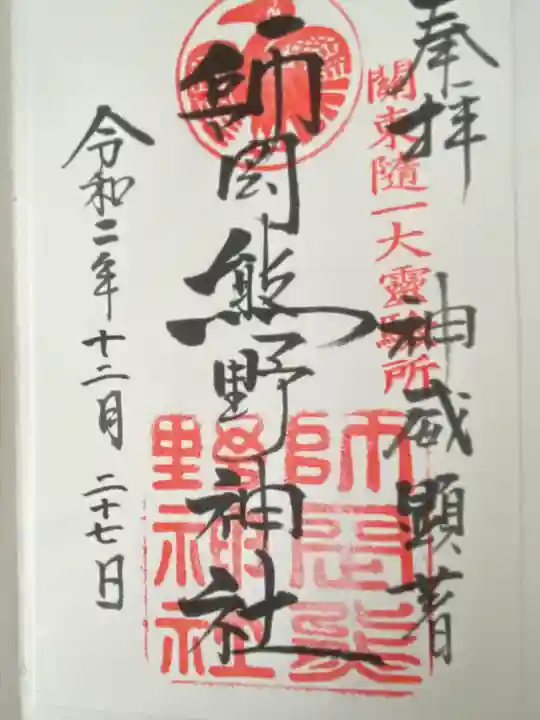 奉拝
神威顕著
關東随一大靈驗所
師岡熊野神社
師岡熊
野神社
令和二年十二月二十七日